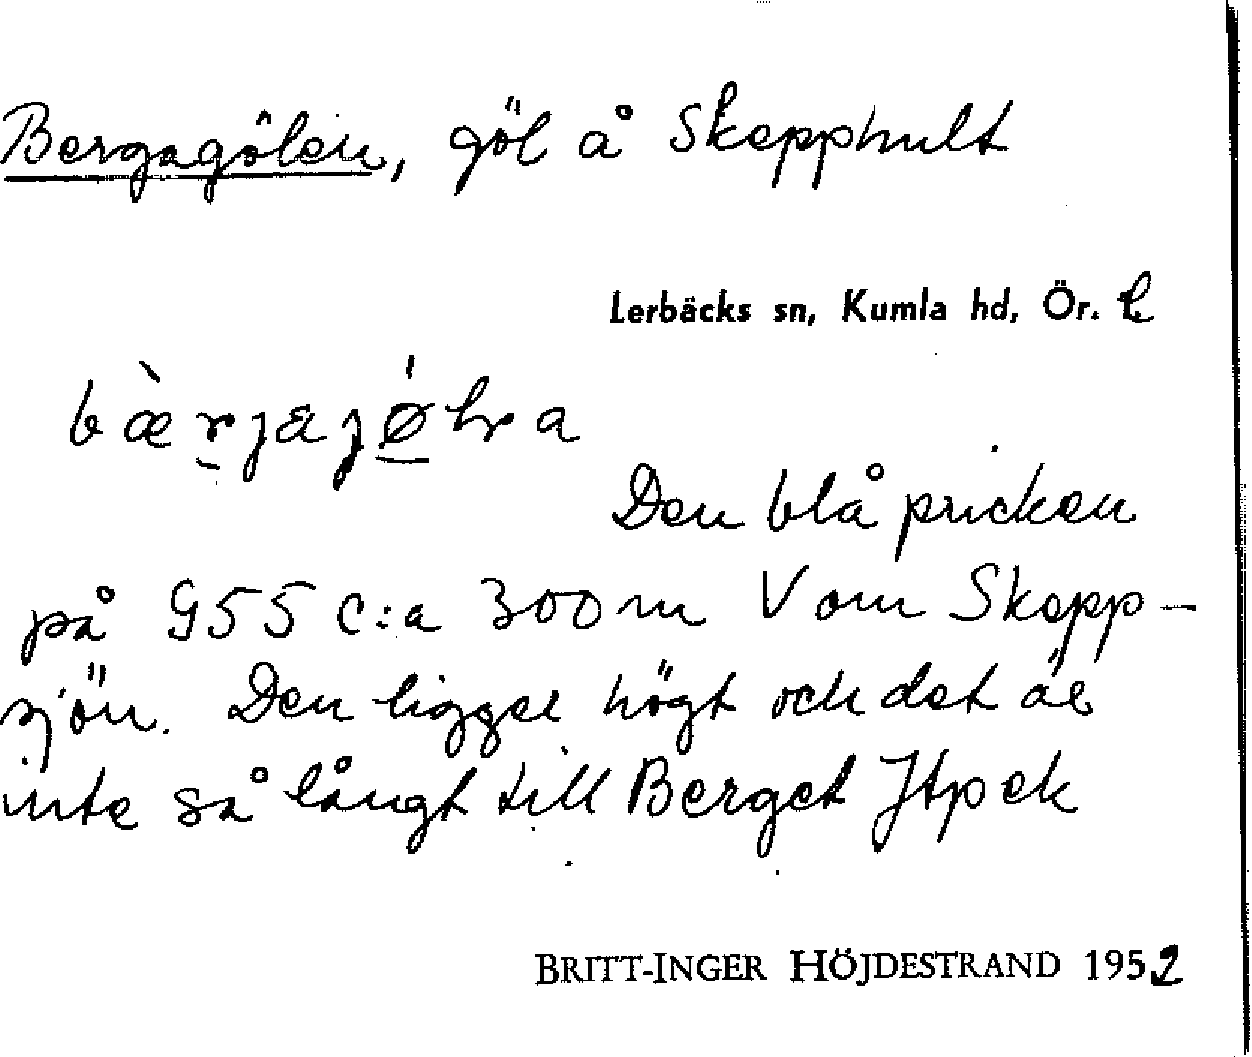 Bergagölen, göl å Skepphult
Lerbäcks sn, Kumla hd, Ör. l.
bæ̀r̲jaj́ø̲lṇa
Den blå pricken
på G55 c:a 300 m V om Skepp-
sjön. Den ligger högt och det är
inte så långt till Berget Jtp ek
BRITT-INGER HÖJDESTRAND 1952